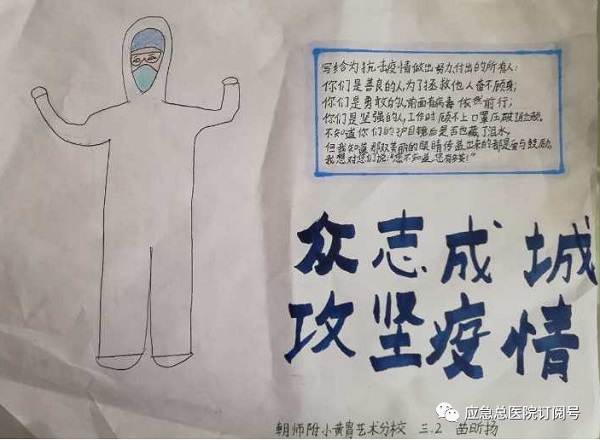 写给为抗击疫情做出努力,付出的所有人:
你们是善良的人,为了拯救他人奋不顾身;
你们是勇敢的人,前面有病毒依然前行;
你们是坚强的人,工作时顾不上口罩压破脸颊。
不知道你们的护目镜后是否也藏了泪水,
但我知道那双美丽的眼睛传出来的都是爱与鼓励。
我想对你们说:“您不知道,您有多美!”
众志成城
攻坚疫情
朝师附小黄胄艺术分校 三.2 苗昕扬
应急总医院订阅号